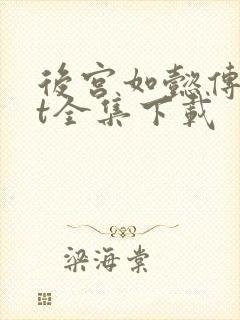 後宮如懿傳
t全集下載
梁海棠